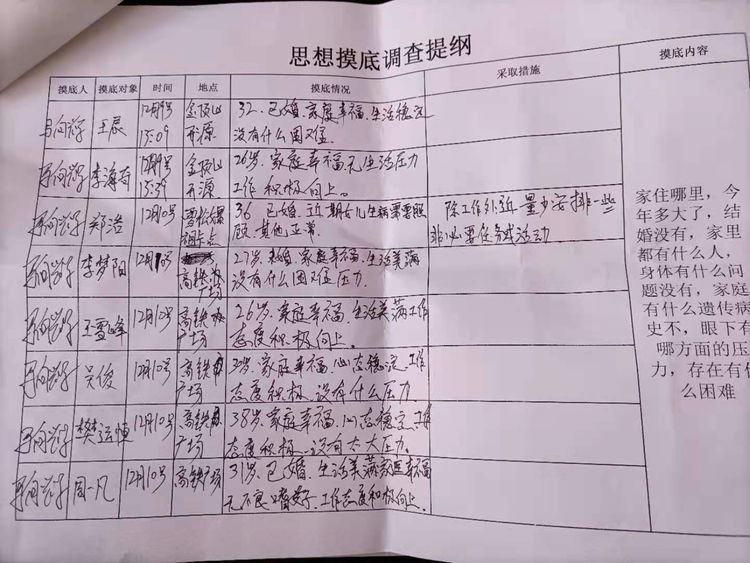 思想摸底调查提纲
摸底人 摸底对象 时间 地点 摸底情况 采取措施 摸底内容
王辰 12月9号 13:09 金顶山 开源 32.已婚.家庭幸福.生活稳定
没有什么困难
李海奇 12月9号 13:29 金顶山 开源 26岁.家庭幸福.无生活压力
工作积极向上。
郑浩 12月10号 36 已婚.近期女儿生病需要照
顾.其他正常.
除工作外近量少安排一些
非必要任务或活动
李梦阳 高铁 广场 27岁.家庭幸福.生活美满
没有什么困难压力.
王雪峰 12月10号 高铁 广场 26岁.家庭幸福.生活美满工作
态度积极向上.
吴俊 12月10号 高铁 广场 家庭幸福.心态稳定.工作
态度积极.没有什么压力.
樊运 12月10号 高铁 广场 38岁.家庭幸福.心态稳定.工作
态度积极.没有太大压力.
周一凡 12月10号 高铁广场 31岁.已婚.生活美满家庭幸福
无不良嗜好.工作态度积极向上.
家住哪里，今
年多大了，结
婚没有，家里
都有什么人，
身体有什么问
题没有，家庭
有什么遗传病
史不，眼下有
哪方面的压
力，存在有什
么困难